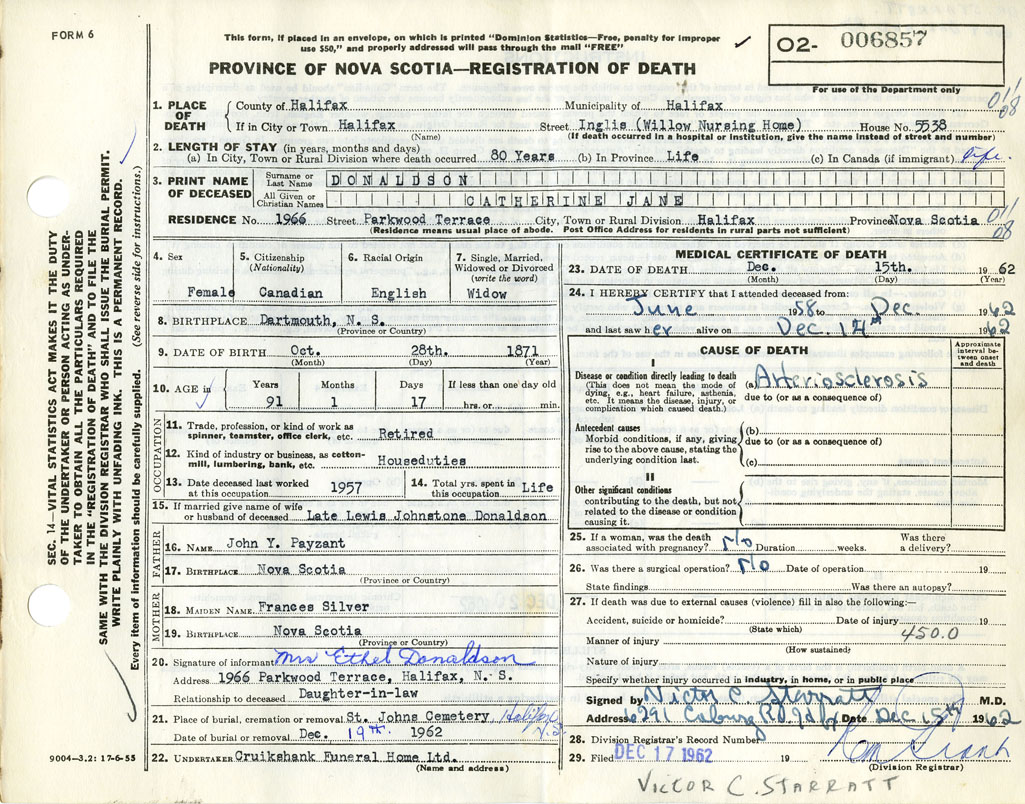 FORM 6
This form, if placed in an envelope, on which is printed "Dominion Statistics—Free, penalty for improper
use $50," and properly addressed will pass through the mail "FREE"
✓
O2- 006857
PROVINCE OF NOVA SCOTIA—REGISTRATION OF DEATH
For use of the Department only
SEC. 14—VITAL STATISTICS ACT MAKES IT THE DUTY
OF THE UNDERTAKER OR PERSON ACTING AS UNDER-
TAKER TO OBTAIN ALL THE PARTICULARS REQUIRED
IN THE "REGISTRATION OF DEATH" AND TO FILE THE
SAME WITH THE DIVISION REGISTRAR WHO SHALL ISSUE THE BURIAL PERMIT.
WRITE PLAINLY WITH UNFADING INK. THIS IS A PERMANENT RECORD.
Every item of information should be carefully supplied. (See reverse side for instructions.)
1. PLACE OF DEATH
County of Halifax Municipality of Halifax
If in City or Town Halifax Street Inglis (Willow Nursing Home) House No. 5538
(Name) (If death occurred in a hospital or institution, give the name instead of street and number)
011/08
2. LENGTH OF STAY (in years, months and days)
(a) In City, Town or Rural Division where death occurred 80 Years (b) In Province Life (c) In Canada (if immigrant) Life.
3. PRINT NAME OF DECEASED
Surname or Last Name DONALDSON
All Given or Christian Names CATHERINE JANE
RESIDENCE No. 1966 Street Parkwood Terrace City, Town or Rural Division Halifax Province Nova Scotia
(Residence means usual place of abode. Post Office Address for residents in rural parts not sufficient)
011/08
4. Sex
Female
5. Citizenship
(Nationality)
Canadian
6. Racial Origin
English
7. Single, Married,
Widowed or Divorced
(write the word)
Widow
8. BIRTHPLACE Dartmouth, N. S.
(Province or Country)
9. DATE OF BIRTH Oct. 28th. 1871
(Month) (Day) (Year)
10. AGE in
Years Months Days If less than one day old
91 1 17 hrs. or min.
OCCUPATION
11. Trade, profession, or kind of work as
spinner, teamster, office clerk, etc. Retired
12. Kind of industry or business, as cotton-
mill, lumbering, bank, etc. Houseduties
13. Date deceased last worked
at this occupation 1957
14. Total yrs. spent in
this occupation Life
15. If married give name of wife
or husband of deceased Late Lewis Johnstone Donaldson
FATHER
16. NAME John Y. Payzant
17. BIRTHPLACE Nova Scotia
(Province or Country)
MOTHER
18. MAIDEN NAME Frances Silver
19. BIRTHPLACE Nova Scotia
(Province or Country)
20. Signature of informant Mrs Ethel Donaldson
Address 1966 Parkwood Terrace, Halifax, N. S.
Relationship to deceased Daughter-in-law
21. Place of burial, cremation or removal St. Johns Cemetery Halifax N.S.
Date of burial or removal Dec. 19th. 1962
22. UNDERTAKER Cruikshank Funeral Home Ltd.
(Name and address)
9004-3.2: 17-6-55
MEDICAL CERTIFICATE OF DEATH
23. DATE OF DEATH Dec. 15th. 1962
(Month) (Day) (Year)
24. I HEREBY CERTIFY that I attended deceased from:
June 1958 to Dec. 1962
and last saw her alive on Dec. 14th 1962
CAUSE OF DEATH
Approximate
interval be-
tween onset
and death
I
Disease or condition directly leading to death
(This does not mean the mode of
dying, e.g., heart failure, asthenia,
etc. It means the disease, injury, or
complication which caused death.)
(a) Arteriosclerosis
due to (or as a consequence of)
Antecedent causes
Morbid conditions, if any, giving
rise to the above cause, stating the
underlying condition last.
(b)
due to (or as a consequence of)
(c)
II
Other significant conditions
contributing to the death, but not
related to the disease or condition
causing it.
25. If a woman, was the death
associated with pregnancy? No Duration weeks. Was there
a delivery?
26. Was there a surgical operation? No Date of operation 19
State findings Was there an autopsy?
27. If death was due to external causes (violence) fill in also the following:—
Accident, suicide or homicide? Date of injury 19
(State which)
450.0
Manner of injury
(How sustained)
Nature of injury
Specify whether injury occurred in industry, in home, or in public place
Signed by Victor C. Starratt M.D.
Address 6291 Coburg Rd Date Dec 15th 1962
28. Division Registrar's Record Number
29. Filed DEC 17 1962 19
(Division Registrar)
VICTOR C. STARRATT